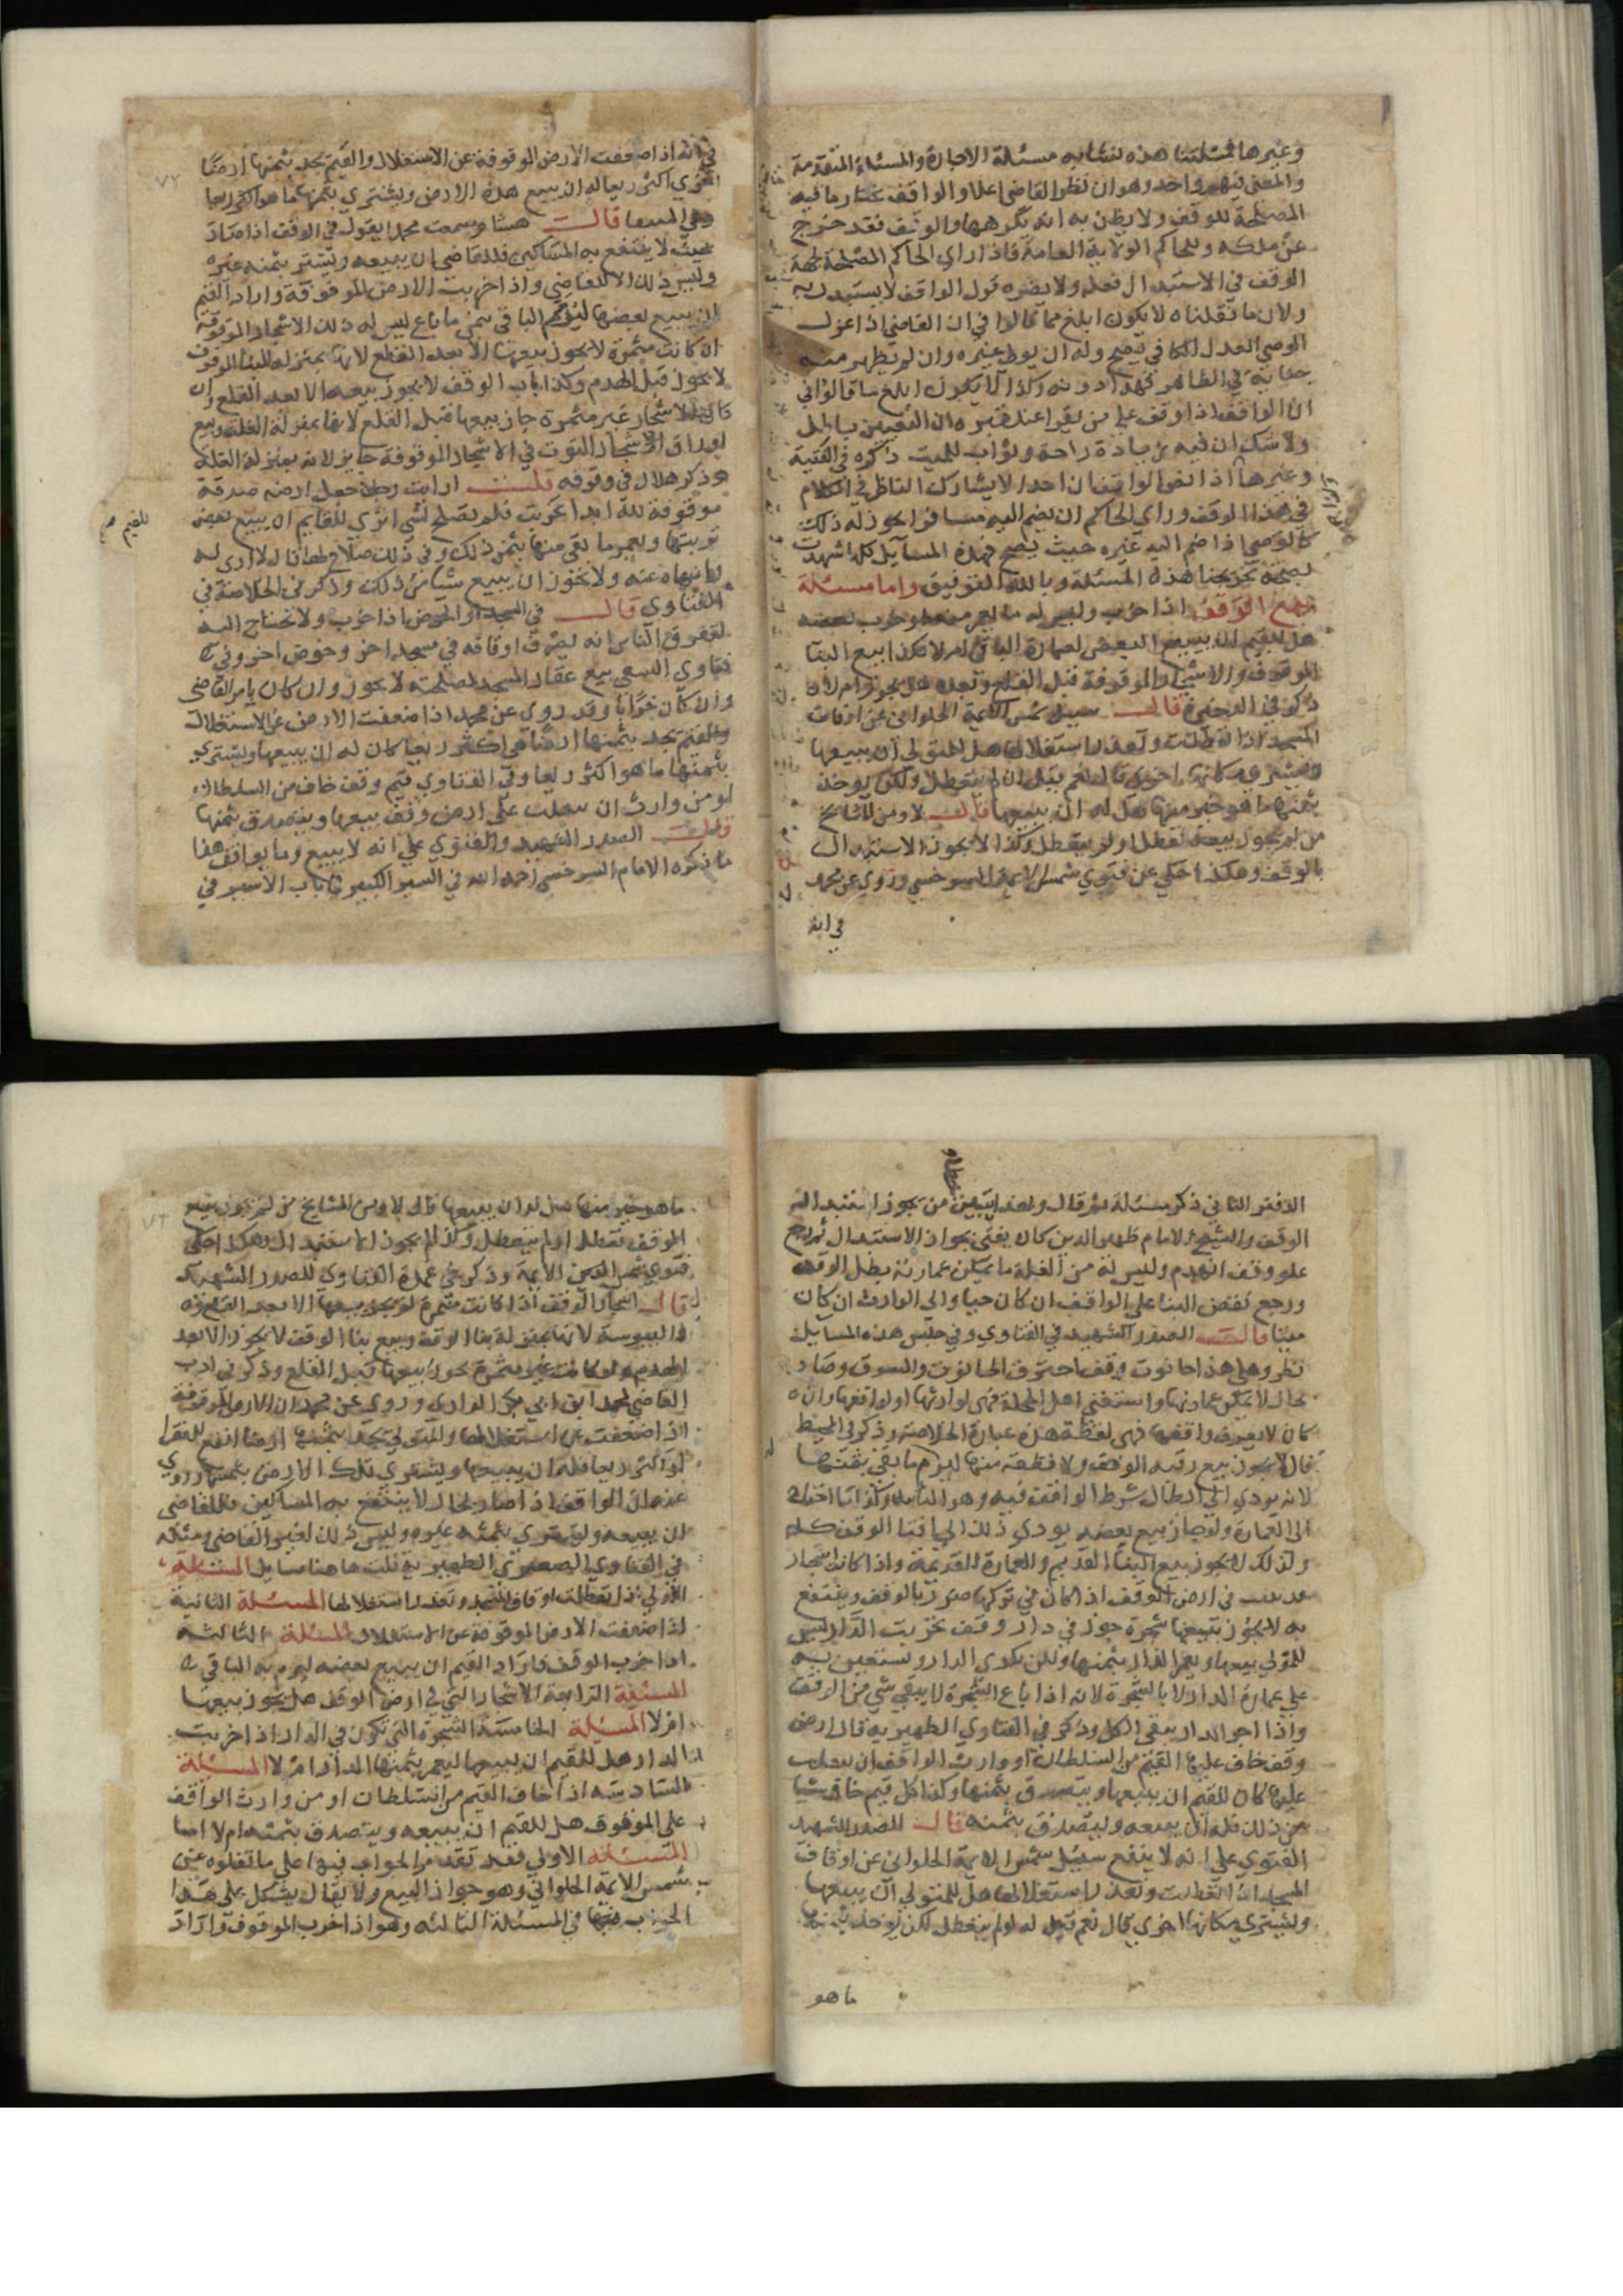 وغيرها فمسئلتنا هذه تشابه مسئلة الاجارة والمسئلة المتقدمة
والمعنى فيهم واحد وهو ان نظر القاضي اعلا والواقف يختار ما فيه
المصلحة للوقف ولا يظن به انه يكرهها والوقف فقد خرج
عن ملكه وللحاكم الولاية العامة فاذا راى الحاكم المصلحة لجهة
الوقف في الاستبدال فعله ولا يضره قول الواقف لا يستبدل به
ولان ما نقلناه لا يكون ابلغ مما قالوا في ان القاضي اذا عزل
الوصي العدل الكافي يصح وله ان يولي غيره وان لم يظهر منه
جناية في الظاهر فهذا دونه وكذا لا يكون ابلغ مما قالوا في
ان الواقف اذا وقف على من يقرا عند قبره ان التعيين باطل
ولا شك ان فيه زيادة راحة وثواب للميت ذكره في القنية
وغيرها اذا نص الواقف ان احدا لا يشارك الناظر في الكلام
في هذا الوقف وراى الحاكم ان يضم اليه مشارفا يجوز له ذلك
كالوصي اذا ضم اليه غيره حيث يصح فهذه المسائل كلها شهدت
بصحة تخريجنا هذه المسئلة وبالله التوفيق واما مسئلة
بيع الوقف اذا خرب وليس له ما يعمر منه او خرب بعضه
هل للقيم ان يبيع البعض لعمارة الباقي ام لا وكذا بيع البنا
الموقوف والاشجار الموقوفة قبل القلع وبعده هل يجوز ام لا
ذكر في الذخيرة قال سئل شمس الائمة الحلواني عن اوقاف
المسجد اذا تعطلت وتعذر استغلالها هل للمتولي ان يبيعها
ويشتري مكانها اخرى قال نعم قيل ان لم يتعطل ولكن يوجد
بثمنها ما هو خير منها هل له ان يبيعها قال لا ومن المشايخ
من لم يجوز بيعه تعطل او لم يتعطل وكذا لا يجوز الاستبدال
بالوقف وهكذا حكي عن فتوى شمس الائمة السرخسي وروي عن محمد
في انه
في انه اذا ضعفت الارض الموقوفة عن الاستغلال والقيم يجد بثمنها ارضا
اخرى اكثر ريعا له ان يبيع هذه الارض ويشتري بثمنها ما هو اكثر ريعا
وفي المنتقى قال هشام سمعت محمدا يقول في الوقف اذا صار
بحيث لا ينتفع به المساكين فللقاضي ان يبيعه ويشتري بثمنه غيره
وليس ذلك الا للقاضي واذا خربت الارض الموقوفة واراد القيم
ان يبيع بعضها ليرم الباقي بثمن ما باع ليس له ذلك الاشجار الموقوفة
ان كانت مثمرة لا يجوز بيعها الا بعد القطع لانها بمنزلة البنا الموقوف
لا يجوز قبل الهدم وكذا باب الوقف لا يجوز بيعه الا بعد القلع وان
كانت الاشجار غير مثمرة جاز بيعها قبل القلع لانها بمنزلة الغلة وبيع
اوراق الاشجار التوت في الاشجار الموقوفة جايز لانه بمنزلة الغلة
وذكر هلال في وقوفه قلت ارايت رجلا جعل ارضه صدقة
موقوفة لله ابدا فخربت فلم تصلح لشي اترى للقايم ان يبيع بعض
تربتها ويعمر ما بقي منها بثمن ذلك وفي ذلك صلاح لها قال لا ارى له
وانهاه عنه ولا يجوز ان يبيع شيا من ذلك وذكر في الخلاصة في
الفتاوي قال في المسجد او الحوض اذا خرب ولا يحتاج اليه
لتفرق الناس انه يصرف اوقافه في مسجد اخر وحوض اخر وفي
فتاوي النسفي بيع عقار المسجد لمصلحته لا يجوز وان كان بامر القاضي
وان كان خرابا وقد روي عن محمد اذا ضعفت الارض عن الاستغلال
والقيم يجد بثمنها ارضا هي اكثر ريعا كان له ان يبيعها ويشتري
بثمنها ما هو اكثر ريعا وفي الفتاوي قيم وقف خاف من السلطان
او من وارث ان يغلب على ارض وقف يبيعها ويتصدق بثمنها
قال الصدر الشهيد والفتوى على انه لا يبيع وما يوافق هذا
ما ذكره الامام السرخسي رحمه الله في السير الكبير في باب الاسير في
للقيم صح
٧٢
الدفتر الثاني ذكر مسئلة ثم قال وبهذا يتبين خطا من يجوز استبدال
الوقف والشيخ الامام ظهير الدين كان يفتي بجواز الاستبدال ثم رجع
علو وقف انهدم وليس له من الغلة ما يمكن عمارته بطل الوقف
ورجع نقض البنا على الواقف ان كان حيا والى الوارث ان كان
ميتا قال الصدر الشهيد في الفتاوي وفي جنس هذه المسايل
نظر وهل هذا حانوت وقف احترق الحانوت والسوق وصار
بحال لا يمكن عمارتها واستغنى اهل المحلة فهي لوارثها او لواقفها وان
كان لا يعرف واقفها فهي لقطة هذه عبارة الخلاصة وذكر في المحيط
قال لا يجوز بيع رقبة الوقف ولا قطعة منها ليرم ما بقي بثمنها
لانه يودي الى ابطال شرط الواقف فيه وهو التابيد وكذا اذا احتاج
الى العمارة ولو جاز بيع بعضه يودي ذلك الى فنا الوقف كله
وكذلك لا يجوز بيع البنا القديم والعمارة القديمة واذا كانت اشجار
في ارض الوقف اذا كان في تركها ضرر بالوقف وينتفع
به لا يجوز بيعها شجرة جوز في دار وقف خربت الدار ليس
للمتولي بيعها ويعمر الدار بثمنها ولكن يكري الدار ويستعين به
على عمارة الدار لا بالشجرة لانه اذا باع الشجرة لا يبقى شي من الوقف
واذا اجر الدار يبقى الكل وذكر في الفتاوي الظهيرية قال ارض
وقف خاف عليها القيم من السلطان او وارث الواقف ان يغلب
عليها كان للقيم ان يبيعها ويتصدق بثمنها وكذا كل قيم خاف شيا
من ذلك فله ان يبيعه ويتصدق بثمنه قال الصدر الشهيد
الفتوى على انه لا يبيع سئل شمس الائمة الحلواني عن اوقاف
المسجد اذا تعطلت وتعذر استغلالها هل للمتولي ان يبيعها
ويشتري مكانها اخرى قال نعم قيل له لو لم يتعطل لكن يوخذ بثمنها
ما هو
ما هو خير منها هل له ان يبيعها قال لا ومن المشايخ من لم يجوز بيع
الوقف تعطل او لم يتعطل وكذا لم يجوز الاستبدال وهكذا حكي
فتوى شمس الائمة وذكر في عمدة الفتاوي للصدر الشهيد
قال اشجار الوقف اذا كانت مثمرة لم يجز بيعها الا بعد القلع
واليبوسة لانها بمنزلة بنا الوقف وبيع بنا الوقف لا يجوز الا بعد
الهدم ولو كانت غير مثمرة يجوز بيعها قبل القلع وذكر في ادب
القاضي لمحمد ابن ابي بكر وروي عن محمد ان الارض الموقوفة
اذا ضعفت عن استغلالها والمتولي يجد بثمنها ارضا انفع للفقرا
او اكثر ريعا فله ان يبيعها ويشتري تلك الارض بثمنها وروي
عنه ان الواقف اذا صار بحال لا ينتفع به المساكين فللقاضي
ان يبيعه ويشتري بثمنه غيره وليس ذلك لغير القاضي ومثله
في الفتاوي الصغرى الظهيرية قلت هاهنا مسايل المسئلة
الاولى اذا تعطلت اوقاف المسجد وتعذر استغلالها المسئلة الثانية
اذا ضعفت الارض الموقوفة عن الاستغلال المسئلة الثالثة
اذا خرب الوقف واراد القيم ان يبيع بعضه ليرم به الباقي
المسئلة الرابعة الاشجار التي في ارض الوقف هل يجوز بيعها
ام لا المسئلة الخامسة الشجرة التي تكون في الدار اذا خربت
الدار هل للقيم ان يبيعها ليعمر بثمنها الدار ام لا المسئلة
السادسة اذا خاف القيم من السلطان او من وارث الواقف
على الموقوف هل للقيم ان يبيعه ويتصدق بثمنه ام لا اما
المسئلة الاولى فقد تقدم الجواب فيها على ما نقلوه عن
شمس الائمة الحلواني وهو جواز البيع ولا يقال يشكل على هذا
الجواب في المسئلة الثالثه وهو اذا خرب الموقوف واراد
٧٣